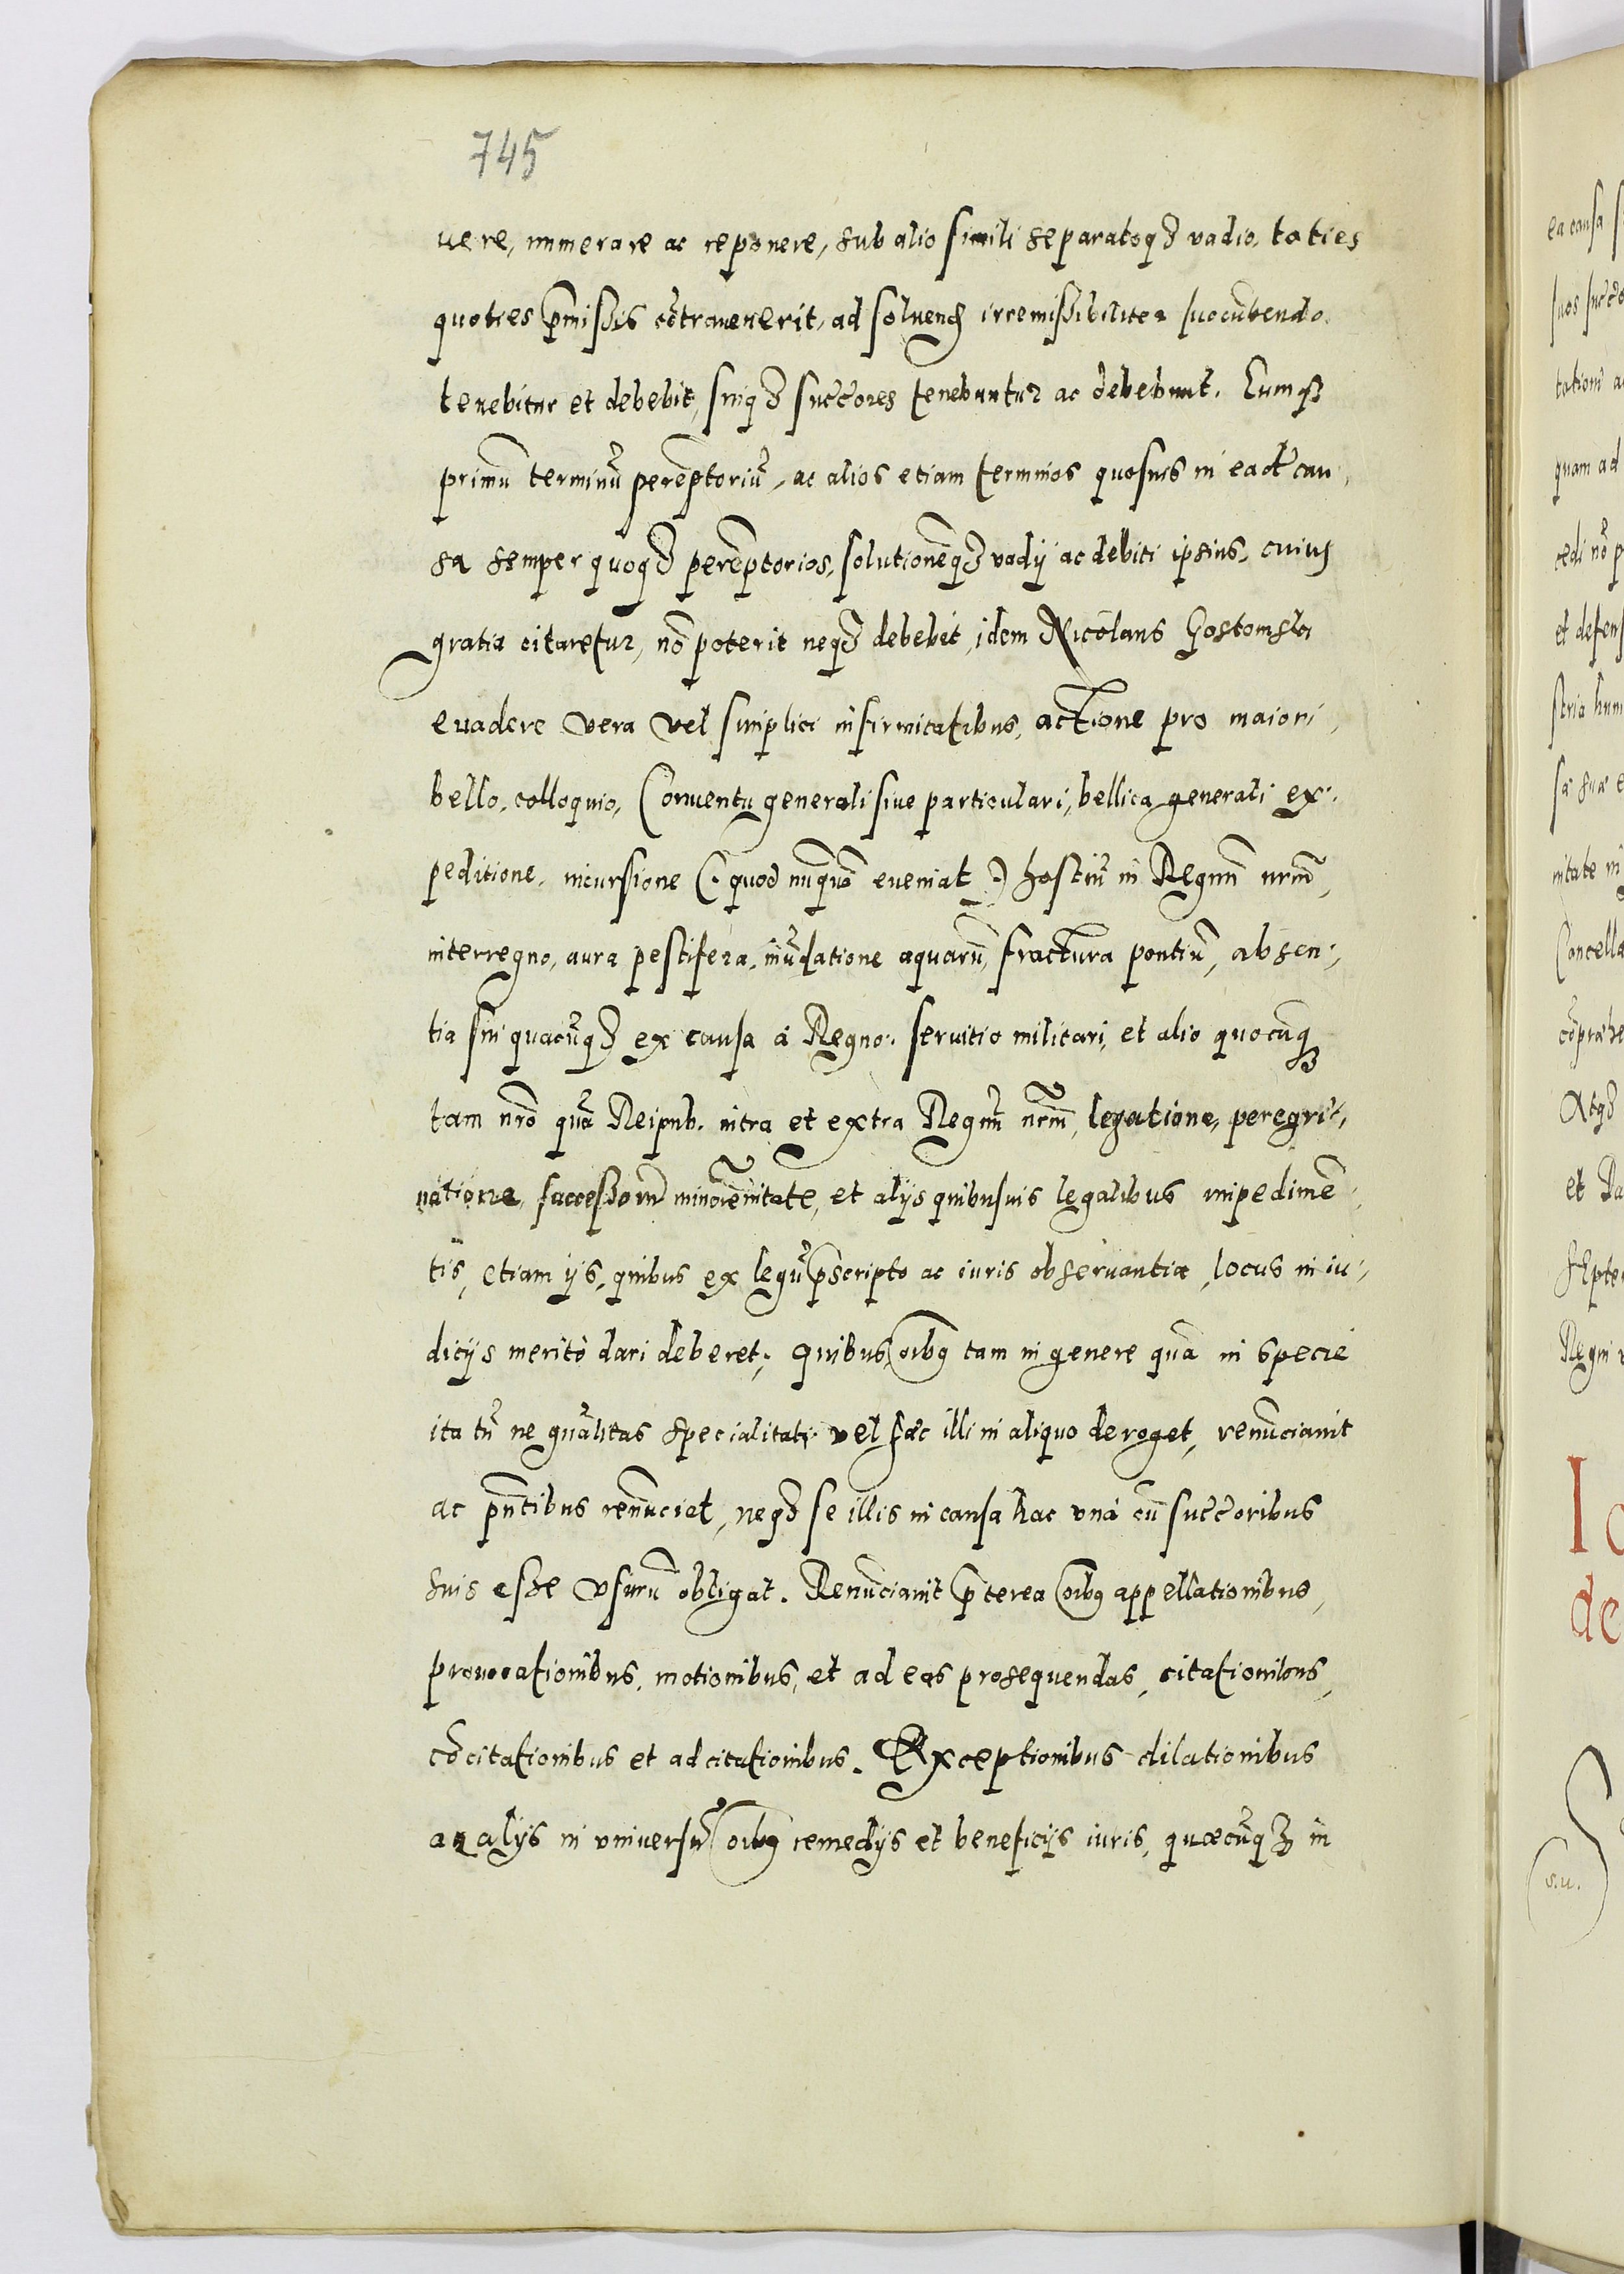 745
uere, numerare ac reponere, sub alio simili separatoq₃ vadio, toties
quoties p̄missis cōtrauenerit, ad soluend̄ irremissibiliter succūbendo.
tenebitur et debebit, suiq₃ succ̄ores tenebuntur ac debebunt. Eumq₃
primū terminū perēptoriū, ac alios etiam terminos quosuis in ead̄ cau,
sa semper quoq₃ perēptorios, solutionēq₃ vadij ac debiti ipsius, cuius
gratia citaretur, nō poterit neq₃ debebit, idem Nicolaus Gostomski
euadere vera vel simplici infirmitatibus, actione pro maiori,
bello, colloquio, Conuentu generali siue particulari, bellica generali ex,
peditione, incursione (: quod nunquā eueniat :) hostiū in Regnū nrm̄,
interregno, aura pestifera, inūdatione aquarū, fractura pontiū, absen,
tia sui quacūq₃ ex causa á Regno: seruitio militari, et alio quocūq₃
tam nrō quā Reipub. intra et extra Regnū nrm̄, legatione, peregri,
natione, successorū minorēnitate, et alijs quibusuis legalibus impedimē,
tis, etiam ijs, quibus ex legū p̄scripto ac iuris obseruantia, locus in iu,
dicijs meritò dari deberet; quibus oībq tam in genere quā in specie
ita tn̄ ne gn̄alitas specialitati vel hæc illi in aliquo deroget, renūciauit
ac pn̄tibus renūciet, neq₃ se illis in causa hac vnà cū succ̄oribus
suis esse vsurū obligat. Renūciauit p̄terea oībq appellationibus,
prouocationibus, motionibus, et ad eas prosequendas, citationibus,
cōcitationibus et adcitationibus. Exceptionibus dilationibus
ac alijs in vniuersū oībq remedijs et beneficijs iuris, quæcūq₃ in
ea causa
tationi
quam ad
cedi nō p
et defens
Cancella
Atq₃
et Da
Septe
Regni
de
s.u.